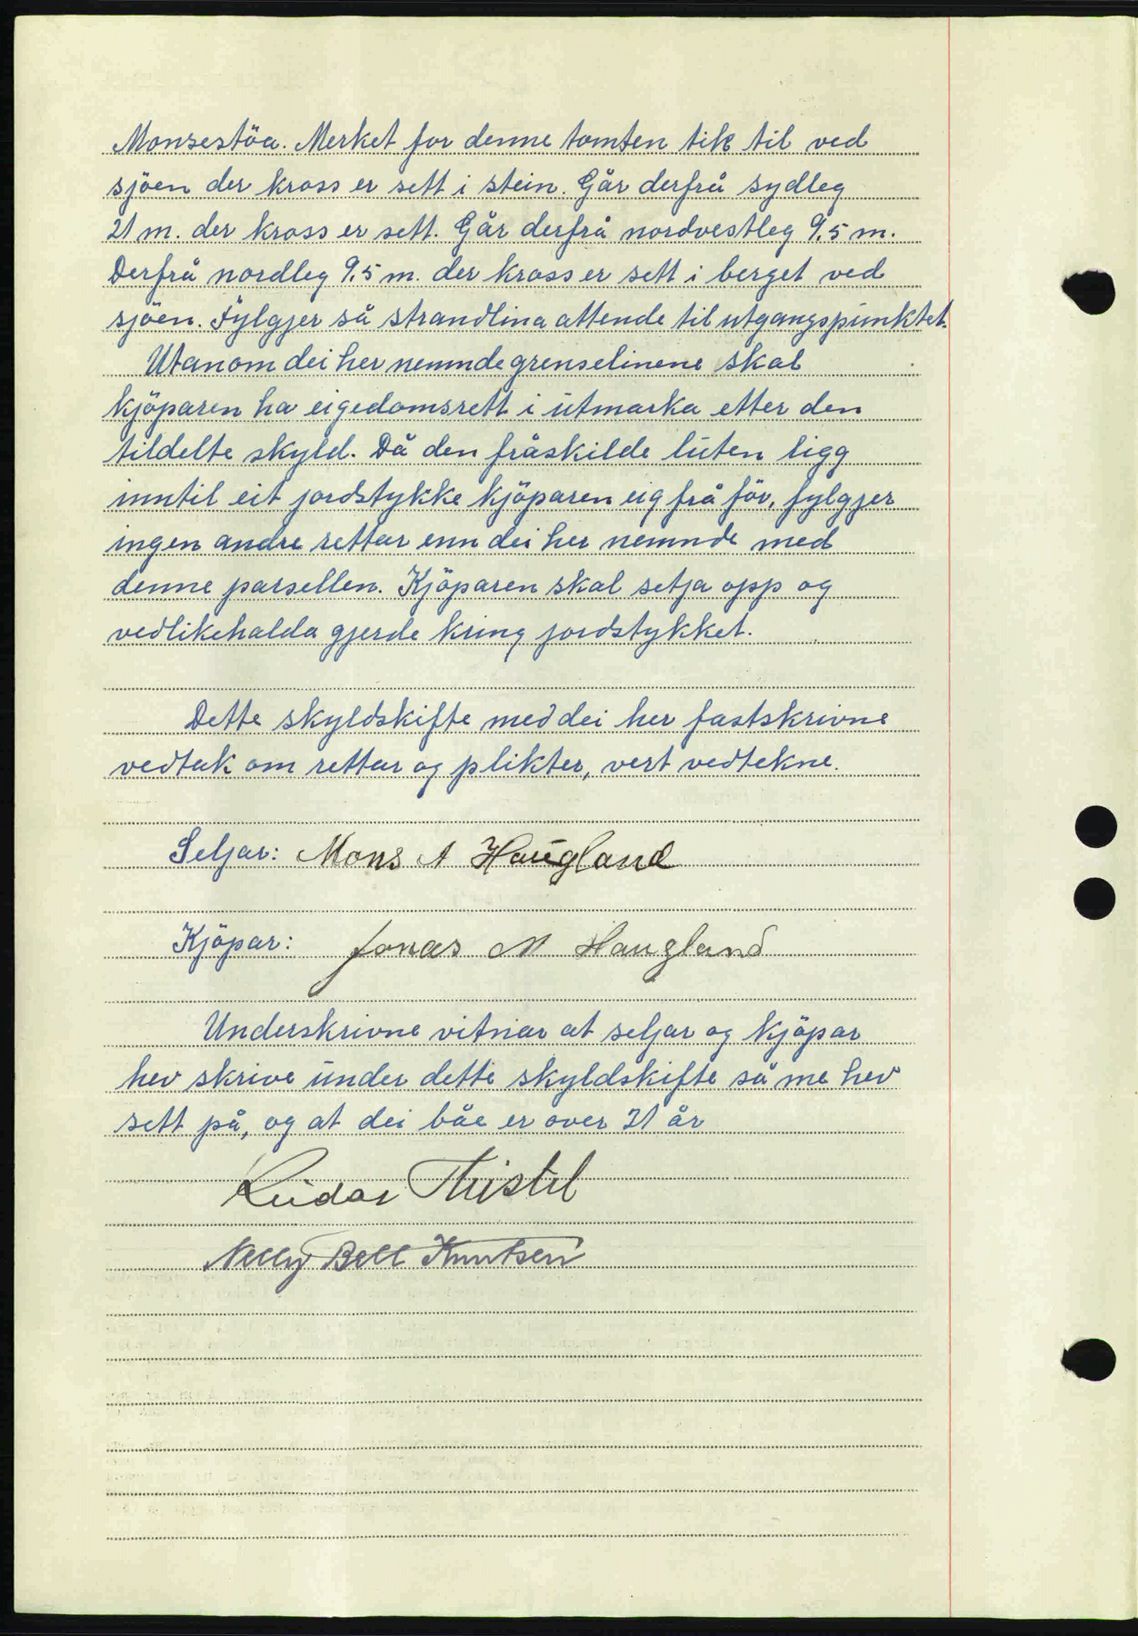 Monsestöa. Merket for denne tomten tek til ved
sjöen der kross er sett i stein. Går derfrå sydleg
21 m. der kross er sett. Går derfrå nordvestleg 9,5 m.
Derfrå nordleg 9,5 m. der kross er sett i berget ved
sjöen. Fylgjer så strandlina attende til utgangspunktet.
Utanom dei her nemnde grenselinene skal
kjöparen ha eigedomsrett i utmarka etter den
tildelte skyld. Då den fråskilde luten ligg
inntil eit jordstykke kjöparen eig frå för, fylgjer
ingen andre rettar enn dei her nemnde med
denne parsellen. Kjöparen skal setja opp og
vedlikehalda gjerde kring jordstykket.
Dette skyldskifte med dei her fastskrivne
vedtak om rettar og plikter, vert vedtekne.
Seljar: Mons A Haugland
Kjöpar: Jonas M Haugland
Underskrivne vitnar at seljar og kjöpar
hev skrive under dette skyldskifte så me hev
sett på, og at dei båe er over 21 år
Reidar Thistel
Nelly Bell Knutsen